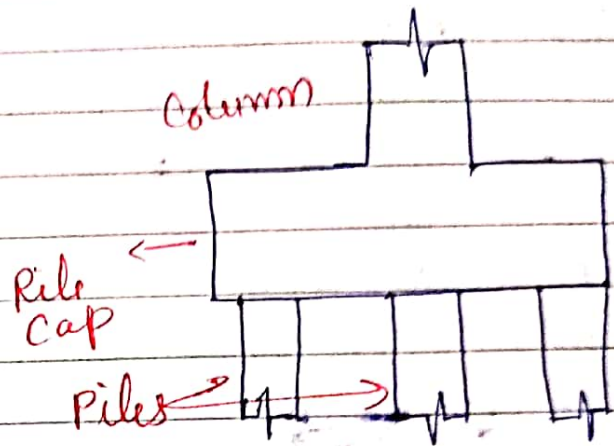 Column
Pile
Cap
Piles